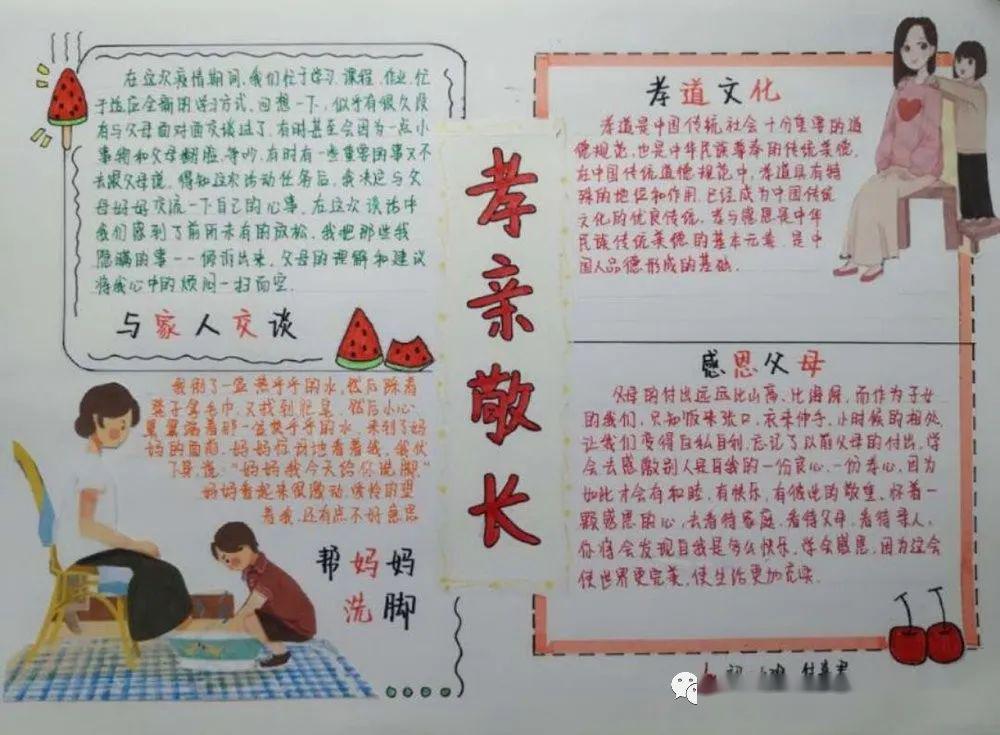 孝亲敬长
在这次疫情期间,我们忙于学习、课程、作业,忙
于适应全新的学习方式,回想一下,似乎有很久没
有与父母面对面交谈过了,有时甚至会因为一点小
事物和父母翻脸、争吵,有时有一些重要的事又不
去跟父母说。得知这次活动任务后,我决定与父
母好好交流一下自己的心事。在这次谈话中
我们感到了前所未有的放松,我把那些我
隐瞒的事一一倾诉出来,父母的理解和建议
将我心中的烦闷一扫而空.
与家人交谈
我倒了一盆热乎乎的水,然后踩着
凳子拿毛巾,又找到肥皂,然后小心
翼翼端着那一盆热乎乎的水,来到了妈
妈的面前,妈妈惊讶地看着我,我伏
下身,说:“妈妈我今天给你洗脚,”
妈妈看起来很激动,爱怜的望
着我,还有点不好意思
帮妈妈
洗脚
孝道文化
孝道是中国传统社会十分重要的道
德规范,也是中华民族尊奉的传统美德。
在中国传统道德规范中,孝道具有特
殊的地位和作用,已经成为中国传统
文化的优良传统。孝与感恩是中华
民族传统美德的基本元素,是中
国人品德形成的基础.
感恩父母
父母的付出远远比山高、比海深,而作为子女
的我们,只知饭来张口,衣来伸手,小时候的相处
让我们变得自私自利,忘记了以前父母的付出,学
会去感激别人是自我的一份良心,一份孝心,因为
如此才会有和睦,有快乐,有彼此的敬重。怀着一
颗感恩的心,去看待家庭,看待父母,看待亲人,
你将会发现自我是多么快乐,学会感恩,因为这会
使世界更完美,使生活更加充实.